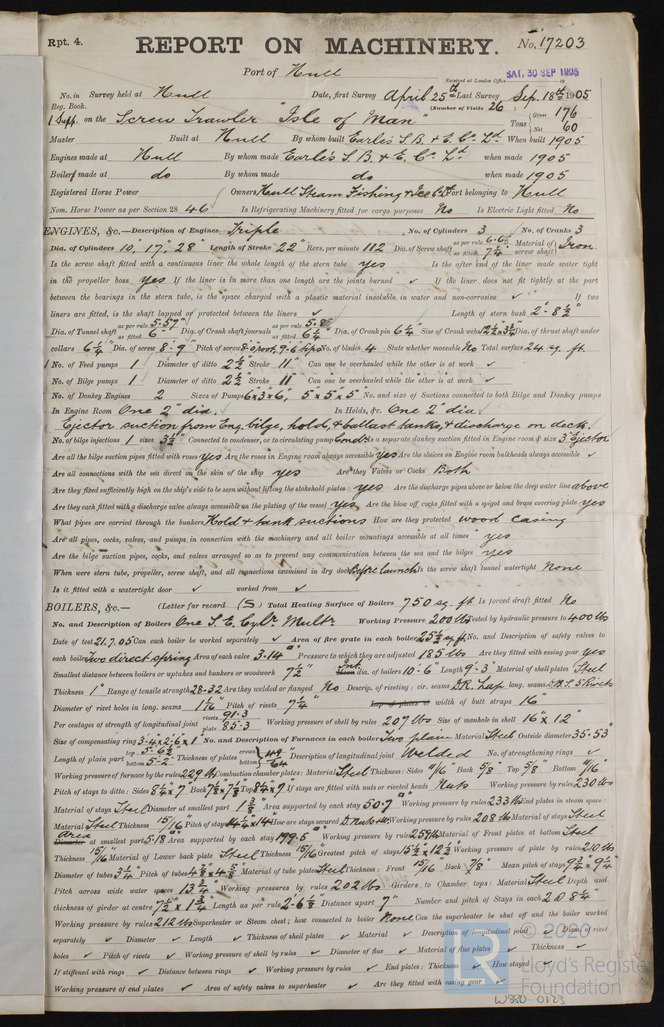 Rpt. 4.
REPORT ON MACHINERY.
No. 17203
Port of Hull
Received at London Office SAT. 30 SEP 1905
No. in Survey held at Hull Date, first Survey April 25th Last Survey Sep. 18th 1905
Reg. Book. (Number of Visits 26
1 Supp. on the Screw Trawler "Isle of Man" Tons { Gross 176 Net 60
Master Built at Hull By whom built Earle's S. B. & E. Co. Ld. When built 1905
Engines made at Hull By whom made Earle's S. B. & E. Co. Ld. when made 1905
Boilers made at do By whom made do when made 1905
Registered Horse Power Owners Hull Steam Fishing & Ice Co. Ld. Port belonging to Hull
Nom. Horse Power as per Section 28 46 Is Refrigerating Machinery fitted for cargo purposes No Is Electric Light fitted No
ENGINES, &c.—Description of Engines Triple No. of Cylinders 3 No. of Cranks 3
Dia. of Cylinders 10, 17, 28" Length of Stroke 22" Revs. per minute 112 Dia. of Screw shaft as per rule 6.6 as fitted 7 1/4 Material of screw shaft Iron
Is the screw shaft fitted with a continuous liner the whole length of the stern tube yes Is the after end of the liner made water tight
in the propeller boss yes If the liner is in more than one length are the joints burned ✓ If the liner does not fit tightly at the part
between the bearings in the stern tube, is the space charged with a plastic material insoluble in water and non-corrosive ✓ If two
liners are fitted, is the shaft lapped or protected between the liners ✓ Length of stern bush 2'-8 1/2"
Dia. of Tunnel shaft as per rule 5.57" as fitted 6" Dia. of Crank shaft journals as per rule 5.8" as fitted 6 1/4" Dia. of Crank pin 6 1/4" Size of Crank webs 12 1/2 x 3 3/4 Dia. of thrust shaft under
collars 6 1/4" Dia. of screw 8'-9" Pitch of screw No. of blades 4 State whether moceable No Total surface 24 sq. ft.
No. of Feed pumps 1 Diameter of ditto 2 1/2" Stroke 11" Can one be overhauled while the other is at work ✓
No. of Bilge pumps 1 Diameter of ditto 2 1/2" Stroke 11" Can one be overhauled while the other is at work ✓
No. of Donkey Engines 2 Sizes of Pumps 6x3x6, 5"x5"x5" No. and size of Suctions connected to both Bilge and Donkey pumps
In Engine Room One 2" dia. In Holds, &c. One 2" dia.
Ejector suction from Eng. bilge, hold, & ballast tanks, & discharge on deck.
No. of bilge injections 1 sizes 3 1/2" Connected to condenser, or to circulating pump Condr. Is a separate donkey suction fitted in Engine room & size 3" Ejector
Are all the bilge suction pipes fitted with roses yes Are the roses in Engine room always accessible yes Are the sluices on Engine room bulkheads always accessible ✓
Are all connections with the sea direct on the skin of the ship yes Are they Valves or Cocks Both
Are they fixed sufficiently high on the ship's side to be seen without lifting the stokehold plates yes Are the discharge pipes above or below the deep water line above
Are they each fitted with a discharge valve always accessible on the plating of the vessel yes Are the blow off cocks fitted with a spigot and brass covering plate yes
What pipes are carried through the bunkers Hold & tank suctions How are they protected wood casing
Are all pipes, cocks, valves, and pumps in connection with the machinery and all boiler mountings accessible at all times yes
Are the bilge suction pipes, cocks, and valves arranged so as to prevent any communication between the sea and the bilges yes
When were stern tube, propeller, screw shaft, and all connections examined in dry dock Before launch Is the screw shaft tunnel watertight None
Is it fitted with a watertight door ✓ worked from ✓
BOILERS, &c.— (Letter for record (S) ) Total Heating Surface of Boilers 750 sq. ft Is forced draft fitted No
No. and Description of Boilers One S. E. Cylr. Multr. Working Pressure 200 lbs Tested by hydraulic pressure to 400 lbs
Date of test 21.7.05 Can each boiler be worked separately ✓ Area of fire grate in each boiler 25 1/2 sq. ft. No. and Description of safety valves to
each boiler Two direct spring Area of each valve 3.14" Pressure to which they are adjusted 185 lbs Are they fitted with easing gear yes
Smallest distance between boilers or uptakes and bunkers or woodwork 7 1/2" Int. dia. of boilers 10'-6" Length 9'-3" Material of shell plates Steel
Thickness 1" Range of tensile strength 28-32 Are they welded or flanged No Descrip. of riveting: cir. seams D.R. Lap long. seams D.B.S. 5 Rivets
Diameter of rivet holes in long. seams 1 1/16" Pitch of rivets 7 1/4" Lap of plates or width of butt straps 16"
Per centages of strength of longitudinal joint rivets 91.3 plate 85.3 Working pressure of shell by rules 207 lbs Size of manhole in shell 16" x 12"
Size of compensating ring 3'-4" x 2'-6" x 1" No. and Description of Furnaces in each boiler Two plain Material Steel Outside diameter 35.53"
Length of plain part top 5'-6 1/2" bottom 5'-2" Thickness of plates crown bottom 49/64" Description of longitudinal joint Welded No. of strengthening rings ✓
Working pressure of furnace by the rules 229 lbs Combustion chamber plates: Material Steel Thickness: Sides 11/16" Back 5/8" Top 5/8" Bottom 11/16"
Pitch of stays to ditto: Sides 8 3/4" x 7" Back 7 7/8" x 7 1/2" Top 8 3/4" x 7" If stays are fitted with nuts or riveted heads Nuts Working pressure by rules 230 lbs
Material of stays Steel Diameter at smallest part 1 3/8" Area supported by each stay 50.7" Working pressure by rules 233 lbs End plates in steam space:
Material Steel Thickness 15/16" Pitch of stays 14 1/4" x 14" How are stays secured D. Nuts Working pressure by rules 208 lbs Material of stays Steel
Area Diameter at smallest part 5.18" Area supported by each stay 199.5" Working pressure by rules 259 lbs Material of Front plates at bottom Steel
Thickness 15/16" Material of Lower back plate Steel Thickness 15/16" Greatest pitch of stays 15 1/2" x 12 1/2" Working pressure of plate by rules 210 lbs
Diameter of tubes 3 1/4" Pitch of tubes 4 5/8" x 4 5/8" Material of tube plates Steel Thickness: Front 15/16" Back 7/8" Mean pitch of stays 9 3/4" x 9 1/4"
Pitch across wide water spaces 13 3/4" Working pressures by rules 202 lbs Girders to Chamber tops: Material Steel Depth and
thickness of girder at centre 7 1/2" x 1 3/4" Length as per rule 2'-6 5/8" Distance apart 7" Number and pitch of Stays in each 2 @ 8 3/4"
Working pressure by rules 212 lbs Superheater or Steam chest; how connected to boiler None Can the superheater be shut off and the boiler worked
separately ✓ Diameter ✓ Length ✓ Thickness of shell plates ✓ Material ✓ Description of longitudinal joint ✓ Diam. of rivet
holes ✓ Pitch of rivets ✓ Working pressure of shell by rules ✓ Diameter of flue ✓ Material of flue plates ✓ Thickness ✓
If stiffened with rings ✓ Distance between rings ✓ Working pressure by rules ✓ End plates: Thickness ✓ How stayed ✓
Working pressure of end plates ✓ Area of safety valves to superheater ✓ Are they fitted with easing gear ✓
© 2020
Lloyd's Register
Foundation
W830-0123